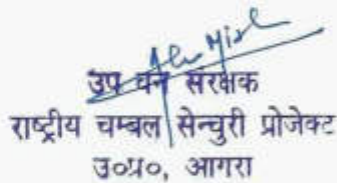 उप वन संरक्षक
राष्ट्रीय चम्बल सेन्चुरी प्रोजेक्ट
उ०प्र०, आगरा